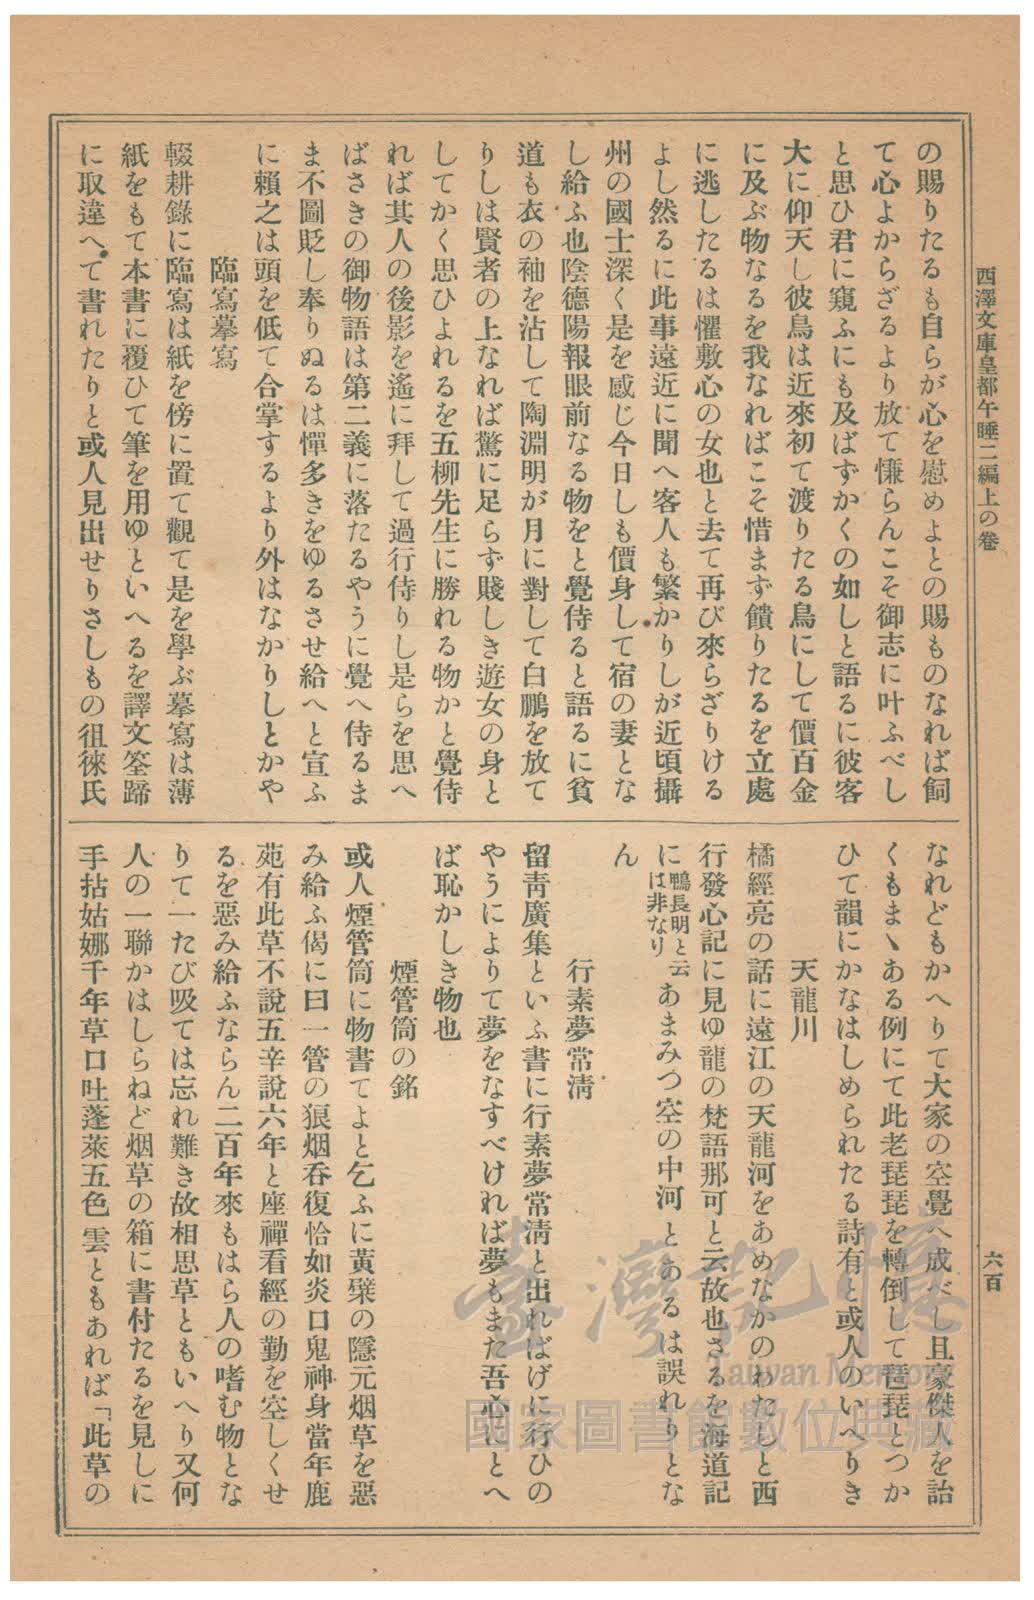 西澤文庫皇都午睡二編上の卷
六百
の賜りたるも自らが心を慰めよとの賜ものなれば飼
て心よからざるより放て慊らんこそ御志に叶ふべし
と思ひ君に窺ふにも及ばずかくの如しと語るに彼客
大に仰天し彼鳥は近來初て渡りたる鳥にして價百金
に及ぶ物なるを我なればこそ惜まず饋りたるを立處
に逃したるは懼敷心の女也と去て再び來らざりける
よし然るに此事遠近に聞へ客人も繁かりしが近頃攝
州の國士深く是を感じ今日しも價身して宿の妻とな
し給ふ也陰德陽報眼前なる物をと覺侍ると語るに貧
道も衣の袖を沾して陶淵明が月に對して白鵬を放て
りしは賢者の上なれば驚に足らず賤しき遊女の身と
してかく思ひよれるを五柳先生に勝れる物かと覺侍
れば其人の後影を遙に拜して過行侍りし是らを思へ
ばさきの御物語は第二義に落たるやうに覺へ侍るま
ま不圖貶し奉りぬるは憚多きをゆるさせ給へと宣ふ
に賴之は頭を低て合掌するより外はなかりしとかや
臨寫摹寫
輟耕錄に臨寫は紙を傍に置て觀て是を學ぶ摹寫は薄
紙をもて本書に覆ひて筆を用ゆといへるを譯文筌蹄
に取違へて書れたりと或人見出せりさしもの徂徠氏
なれどもかへりて大家の空覺へ成べし且豪傑人を詒
くもまゝある例にて此老琵琶を轉倒して琶琵とつか
ひて韻にかなはしめられたる詩有と或人のいへりき
天龍川
橘經亮の話に遠江の天龍河をあめなかのわたしと西
行發心記に見ゆ龍の梵語那可と云故也さるを海道記
に鴨長明と云は非なりあまみつ空の中河とあるは誤れりとな
ん
行素夢常淸
留靑廣集といふ書に行素夢常淸と出ればげに行ひの
やうによりて夢をなすべければ夢もまた吾心にとへ
ば恥かしき物也
煙管筒の銘
或人煙管筒に物書てよと乞ふに黃檗の隱元烟草を惡
み給ふ偈に曰一管の狼烟呑復恰如炎口鬼神身當年鹿
苑有此草不說五辛說六年と座禪看經の勤を空しくせ
るを惡み給ふならん二百年來もはら人の嗜む物とな
りて一たび吸ては忘れ難き故相思草ともいへり又何
人の一聯かはしらねど烟草の箱に書付たるを見しに
手拈姑娜千年草口吐蓬萊五色雲ともあれば「此草の
臺灣記憶
Taiwan Memory
國家圖書館數位典藏